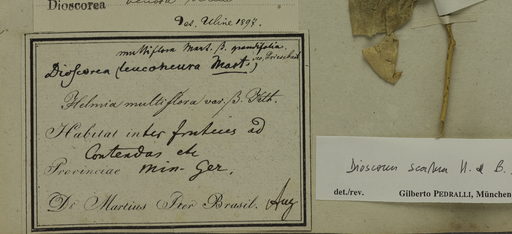 Dioscorea
Det. Uline 1897.
multiflora Mart. β. grandifolia
Dioscorea (leuconeura Mart.)
Helmia multiflora var. β. Kth.
Habitat inter frutices ad
Contendas etc
Provinciae Min. Ger.
Dr Martius Iter Brasil. Aug
Dioscorea scabra H. & B.
det./rev. Gilberto PEDRALLI, München